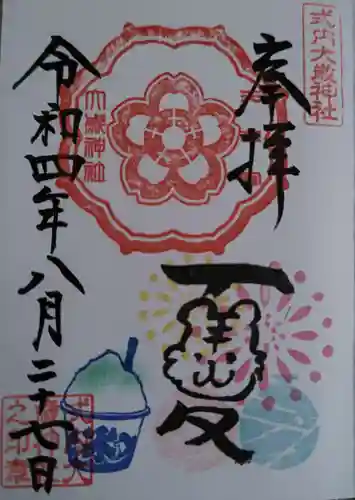 式内大歳神社
奉拝
夏
大歳神社
令和四年八月二十七日